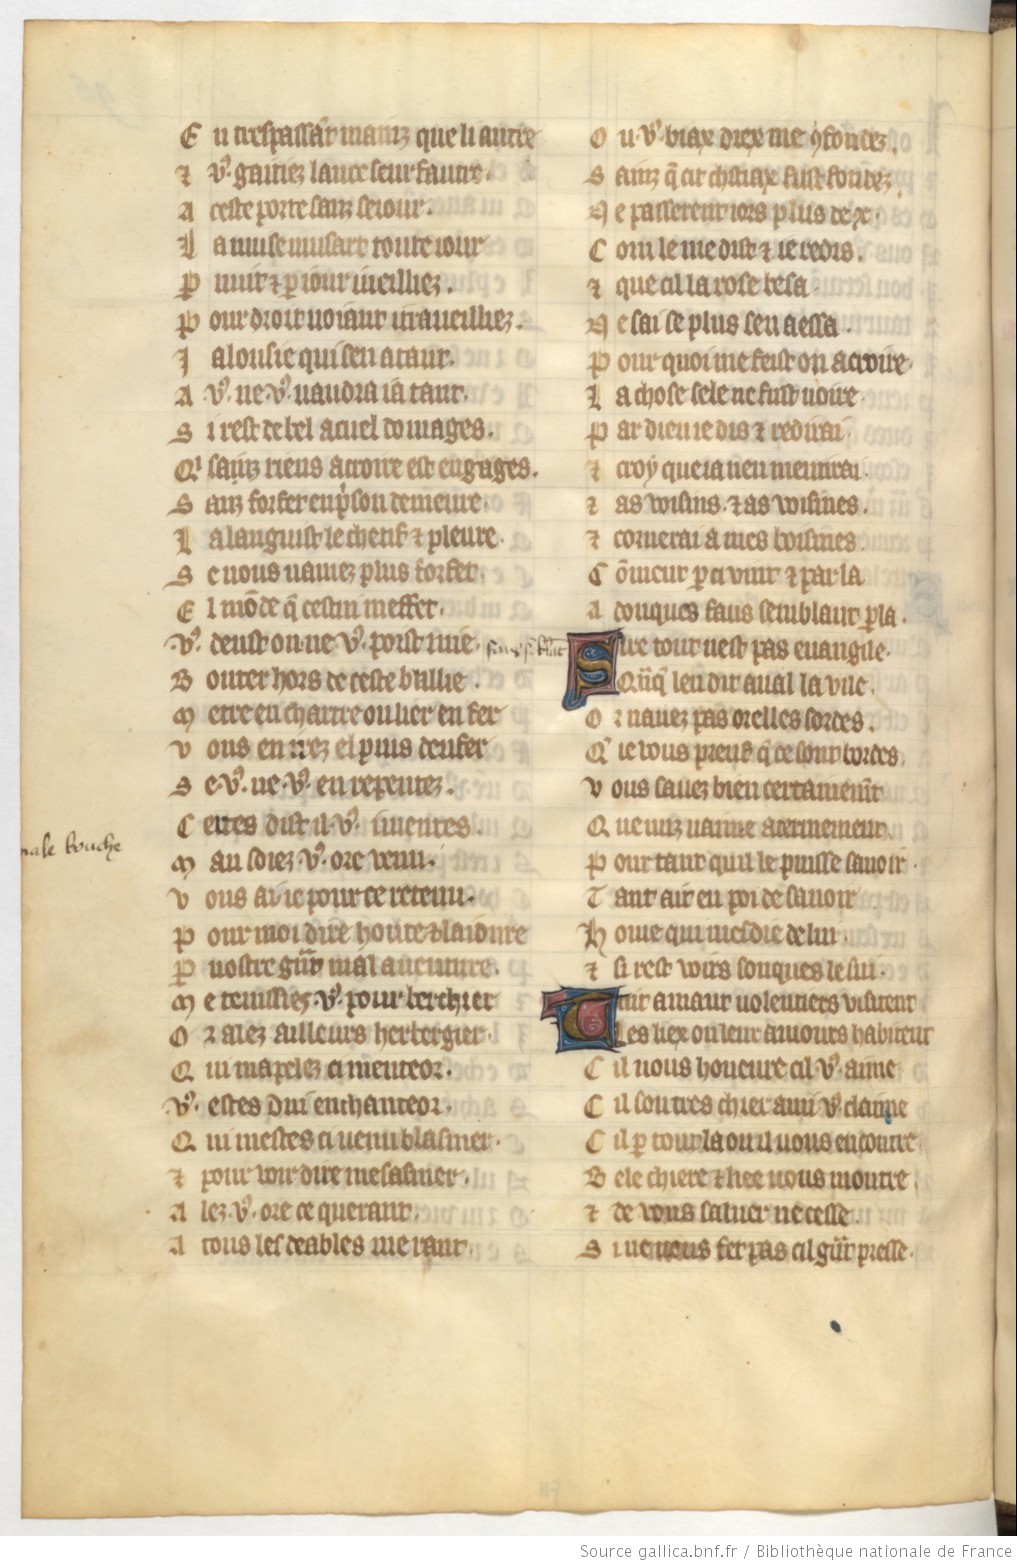 E n trespassãt mainz que li autre
⁊ vꝰ gaitiez lance seur fautre.
A ceste porte sanz seiour.
L a muse musart toute iour
P nuit ⁊ ꝑ iour i veilliez.
P our droit noiant i traueilliez.
J alousie qui sen atant.
A vꝰ. ne vꝰ vaudra ia tant.
S i rest de bel acuel domages.
Qͥ sanz riens acroire est en gages.
S anz forfet en pͥson demeure.
L a languist le chetif ⁊ pleure.
S e vous nauiez plus forfet.
E l mõde q̃ cestui meffet.
vꝰ. deust on ne vꝰ. poist mie.
B outer hors de ceste ballie.
M etre en chartre ou lier en fer
V ous en irez el puis denfer
S e vꝰ. ne vꝰ. en repentez.
C ertes dist il vꝰ. i mentez.
male bouche
M au soiez vꝰ. ore venu.
V ous ai ie pour ce retenu.
P our moi dire honte ⁊ laidure
P vostre gñt mal auenture.
M e tenissiez vꝰ. pour berchier
O r alez ailleurs herbergier.
Q ui mapelez ci menteor.
vꝰ. estes dui enchanteor.
Q ui mestes ci venu blasmer.
⁊ pour voir dire mesasmer.
A lez vꝰ. ore ce querant.
A tous les deables me rant.
O u vꝰ. biax diex me ꝯfondez.
S ainz q̃ cit chastiax fust fondez
N e passerent iors plus de x.
C om le me dist ⁊ ie redis.
⁊ que cil la rose besa.
N e sai se plus sen aessa.
P our quoi me feist on acroire.
L a chose sele ne fust uoire.
P ar dieu ie dis ⁊ redirai.
⁊ croy que ia nen mentirai.
⁊ as voisins. ⁊ as voisines.
⁊ cornerai a mes boisines.
C õmeur ꝑ ci vint ⁊ par la
A donques faus semblant ꝑla.
S ire tout nest pas euangile.
Qñq̃ len dit aual la vile.
O r nauez pas orelles sordes.
Qͥ ie vous preuf q̃ ce sont bordes
V ous sauez bien certainemt
Q ue nuz naime acertinement.
P our tant quil le puisse sauoir.
T ant ait en poi de sauoir
H ome qui mesdie de lui.
⁊ si rest voirs sonques le fui.
T uit amant volentiers visitent
Les liex ou leur amours habitent
C il vous heneure cil vꝰ. aime
C il son tres chier ami vꝰ claime
C il ꝑ tout la ou il vous encontre
B ele chiere ⁊ liee vous moutre.
⁊ de vous saluer ne cesse.
S i ne vous fet pas cil gñt presse.
Source gallica.bnf.fr / Bibliothèque nationale de France